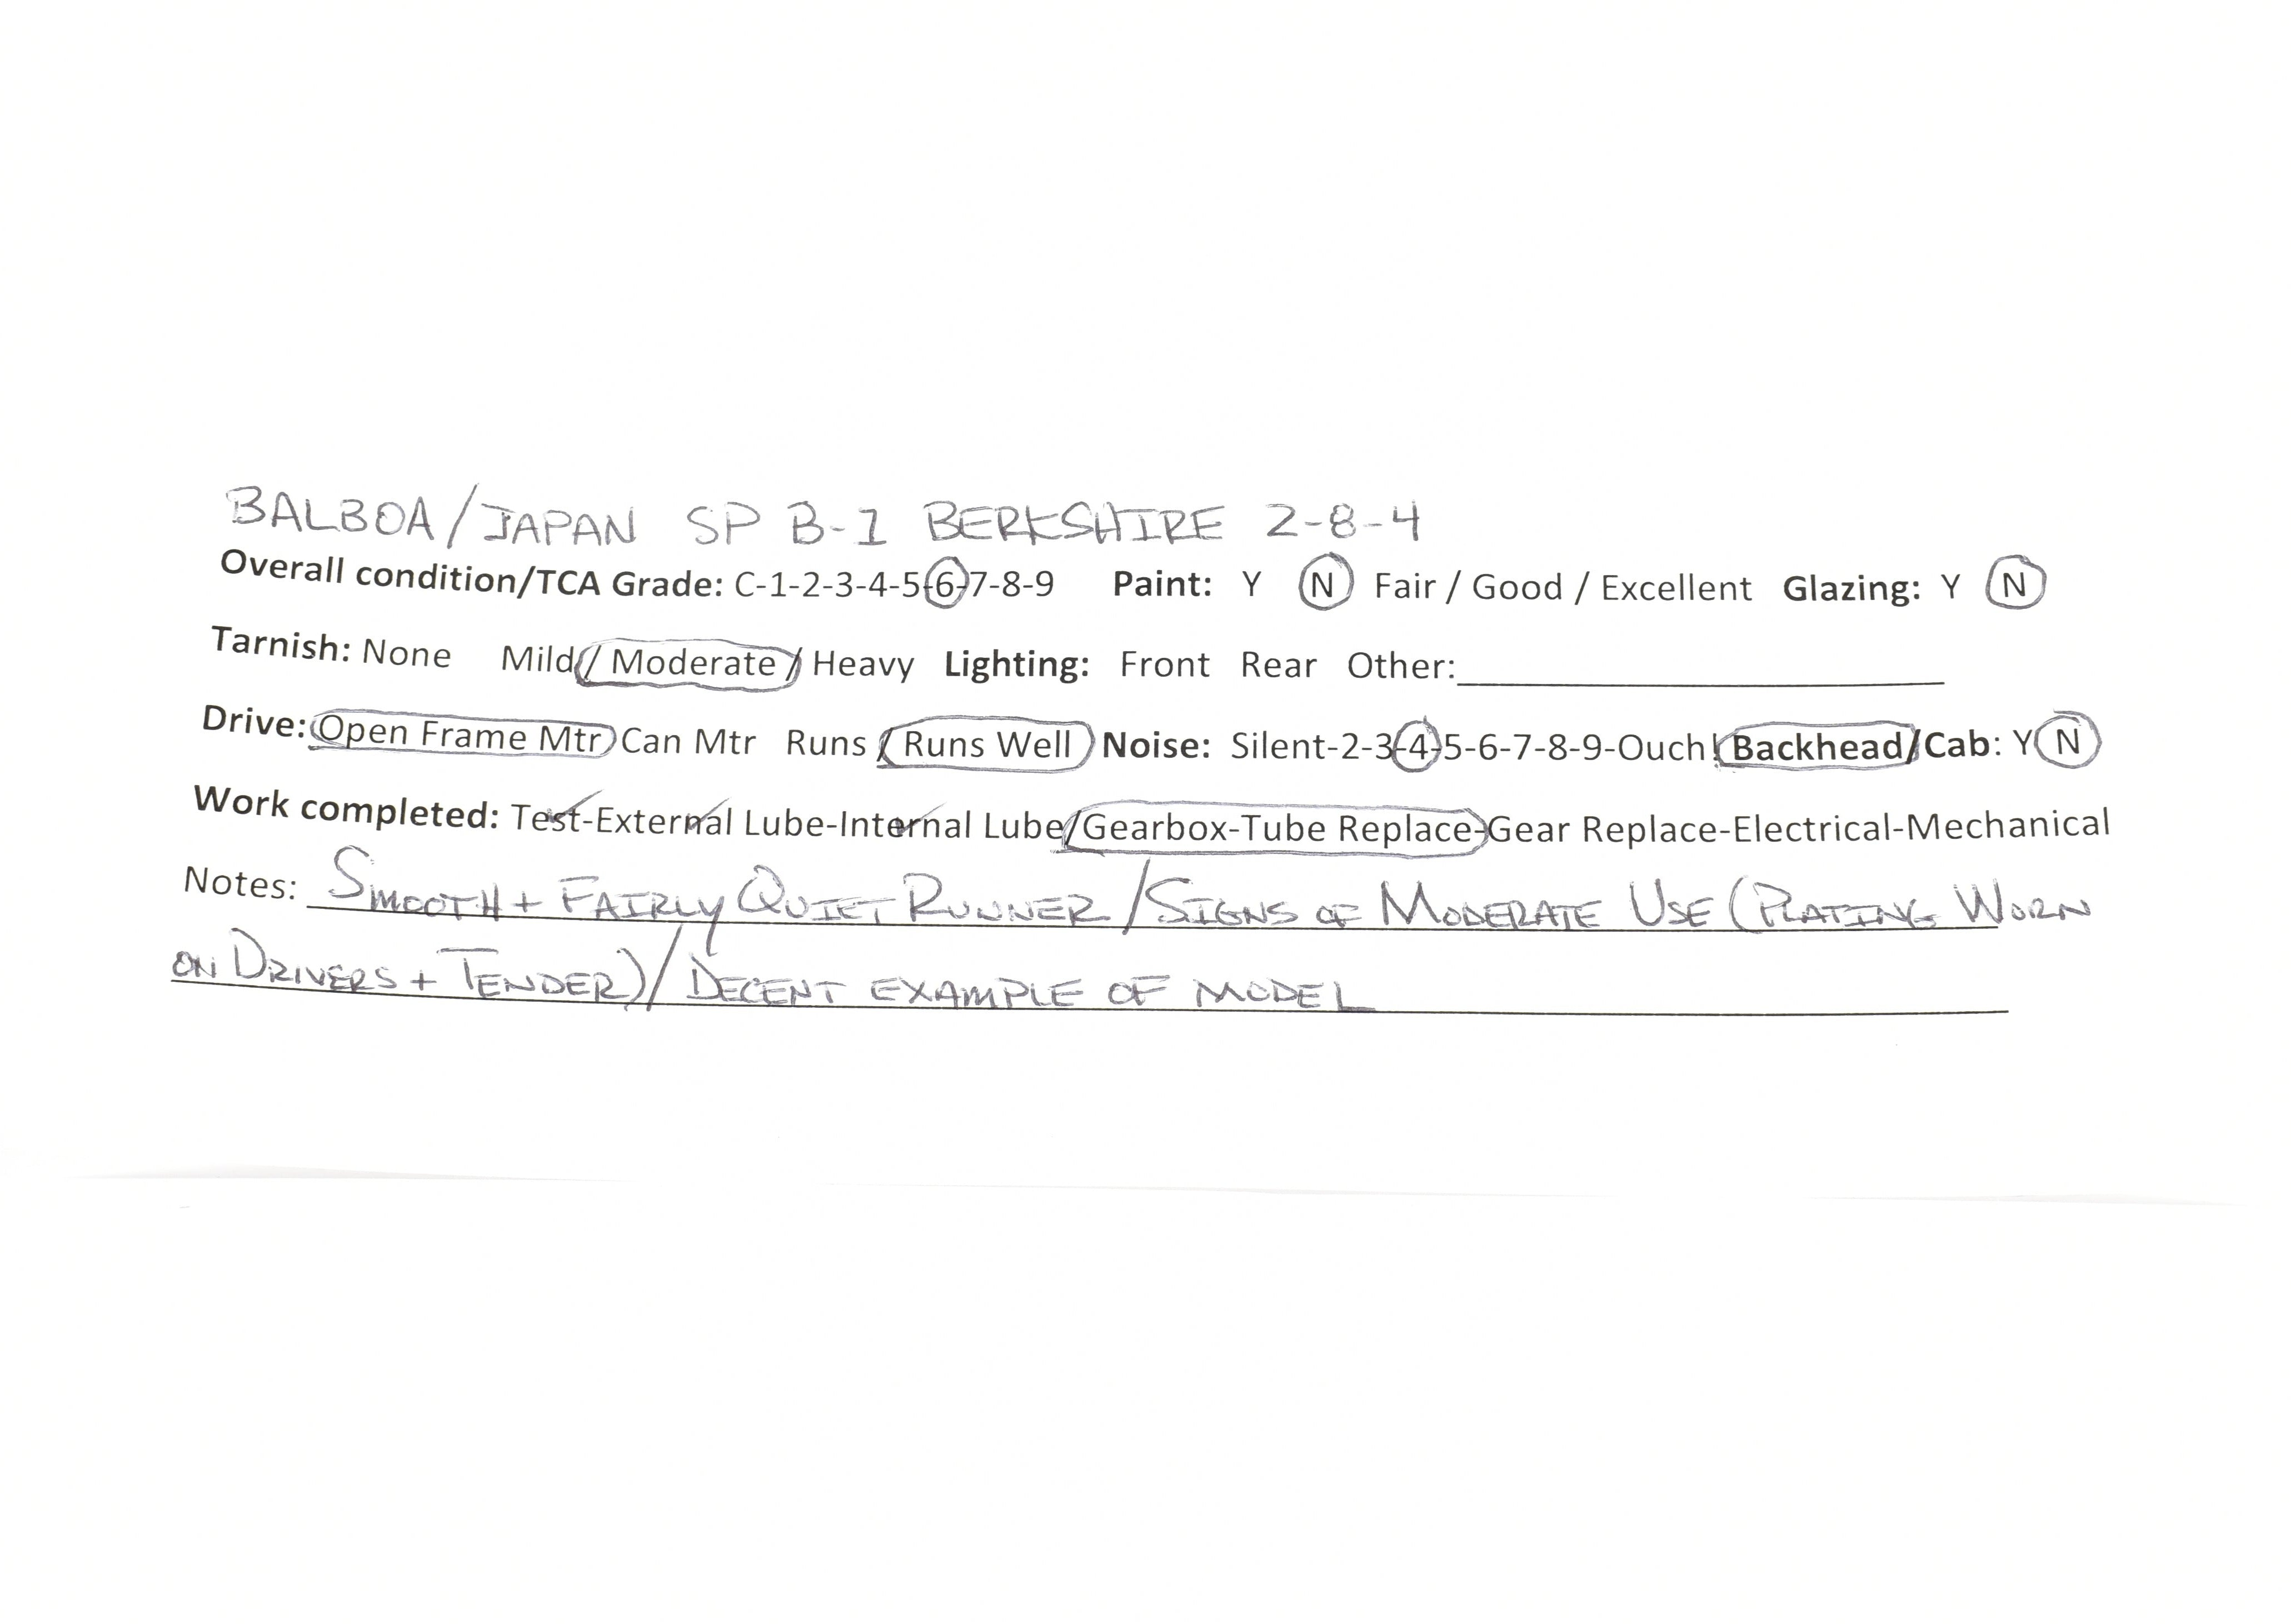 BALBOA/JAPAN SP B-1 BERKSHIRE 2-8-4
Overall condition/TCA Grade: C-1-2-3-4-5-6-7-8-9 Paint: Y N Fair / Good / Excellent Glazing: Y N
Tarnish: None Mild / Moderate / Heavy Lighting: Front Rear Other:
Drive: Open Frame Mtr Can Mtr Runs / Runs Well Noise: Silent-2-3-4-5-6-7-8-9-Ouch! Backhead/Cab: Y N
Work completed: Test-External Lube-Internal Lube/Gearbox-Tube Replace-Gear Replace-Electrical-Mechanical
Notes: SMOOTH + FAIRLY QUIET RUNNER / SIGNS OF MODERATE USE (PLATING WORN
ON DRIVERS + TENDER) / DECENT EXAMPLE OF MODEL